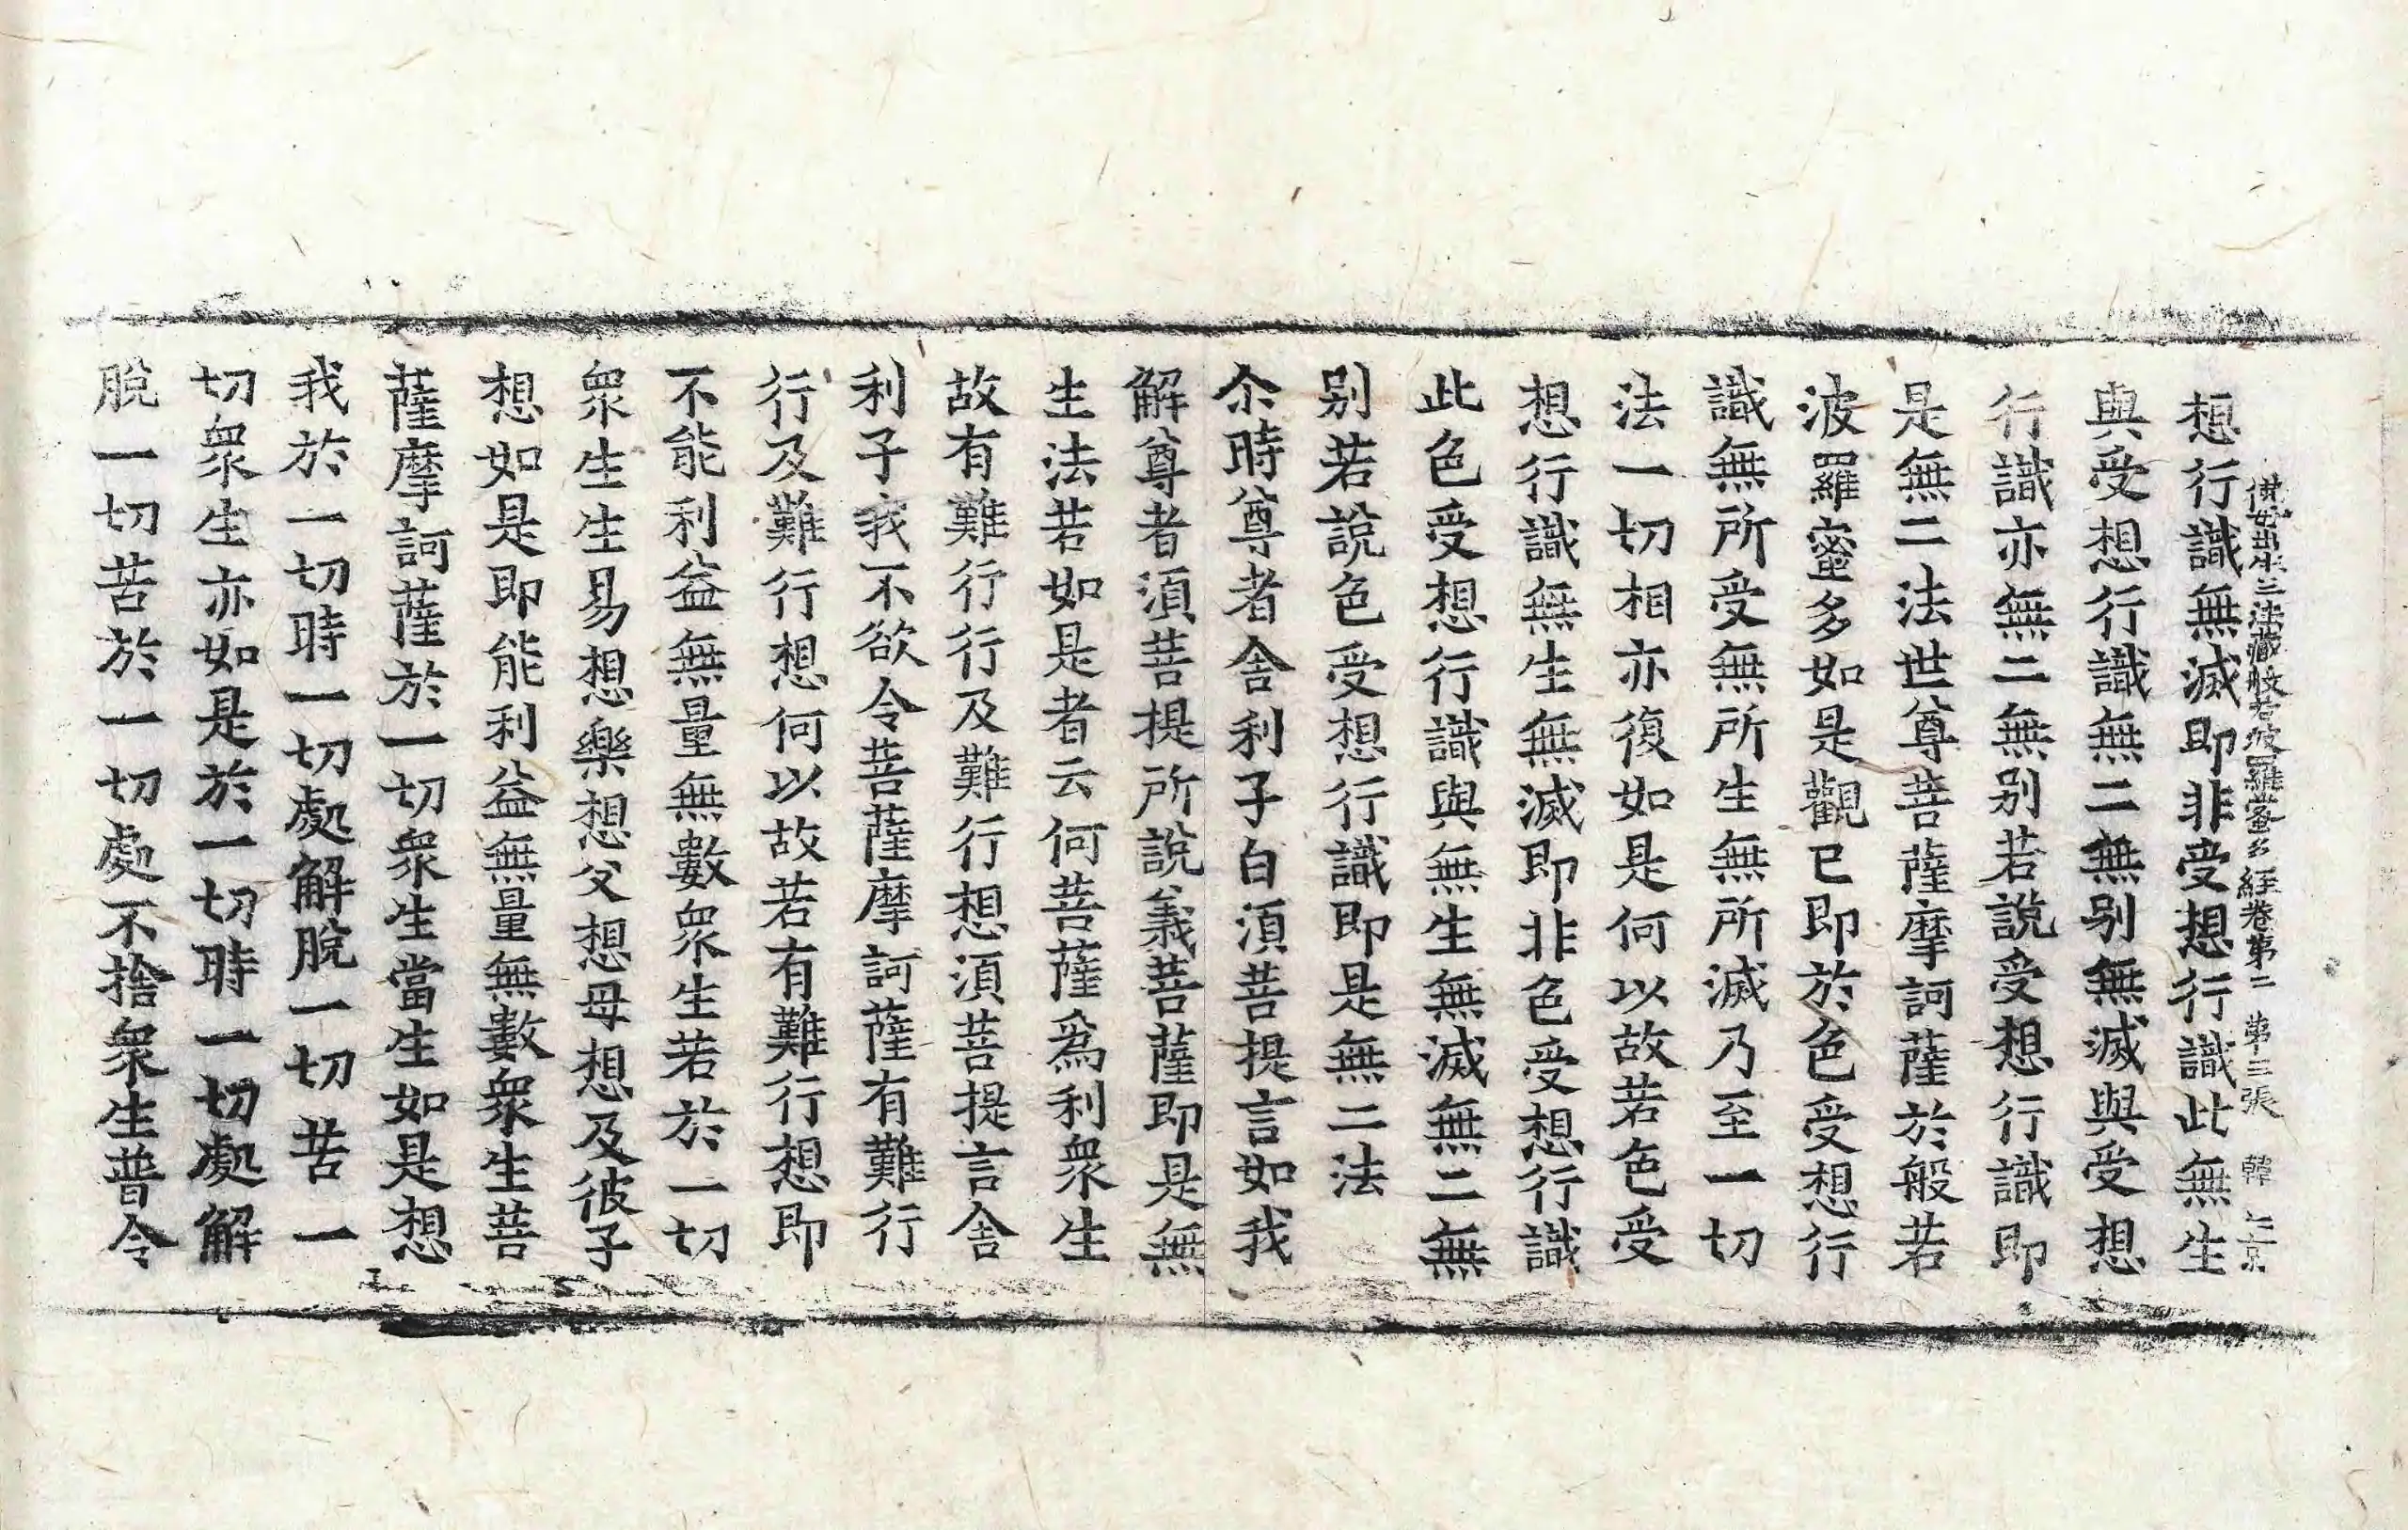 佛母出生三法藏般若波羅蜜多經卷第二　第三張　韓
想行識無滅即非受想行識此無生
與受想行識無二無别無滅與受想
行識亦無二無别若說受想行識即
是無二法世尊菩薩摩訶薩於般若
波羅蜜多如是觀已即於色受想行
識無所受無所生無所滅乃至一切
法一切相亦復如是何以故若色受
想行識無生無滅即非色受想行識
此色受想行識與無生無滅無二無
别若說色受想行識即是無二法
尒時尊者舍利子白須菩提言如我
解尊者須菩提所說義菩薩即是無
生法若如是者云何菩薩爲利衆生
故有難行行及難行想須菩提言舍
利子我不欲令菩薩摩訶薩有難行
行及難行想何以故若有難行想即
不能利益無量無數衆生若於一切
衆生生易想樂想父想母想及彼子
想如是即能利益無量無數衆生菩
薩摩訶薩於一切衆生當生如是想
我於一切時一切處解脫一切苦一
切衆生亦如是於一切時一切處解
脫一切苦於一切處不捨衆生普令